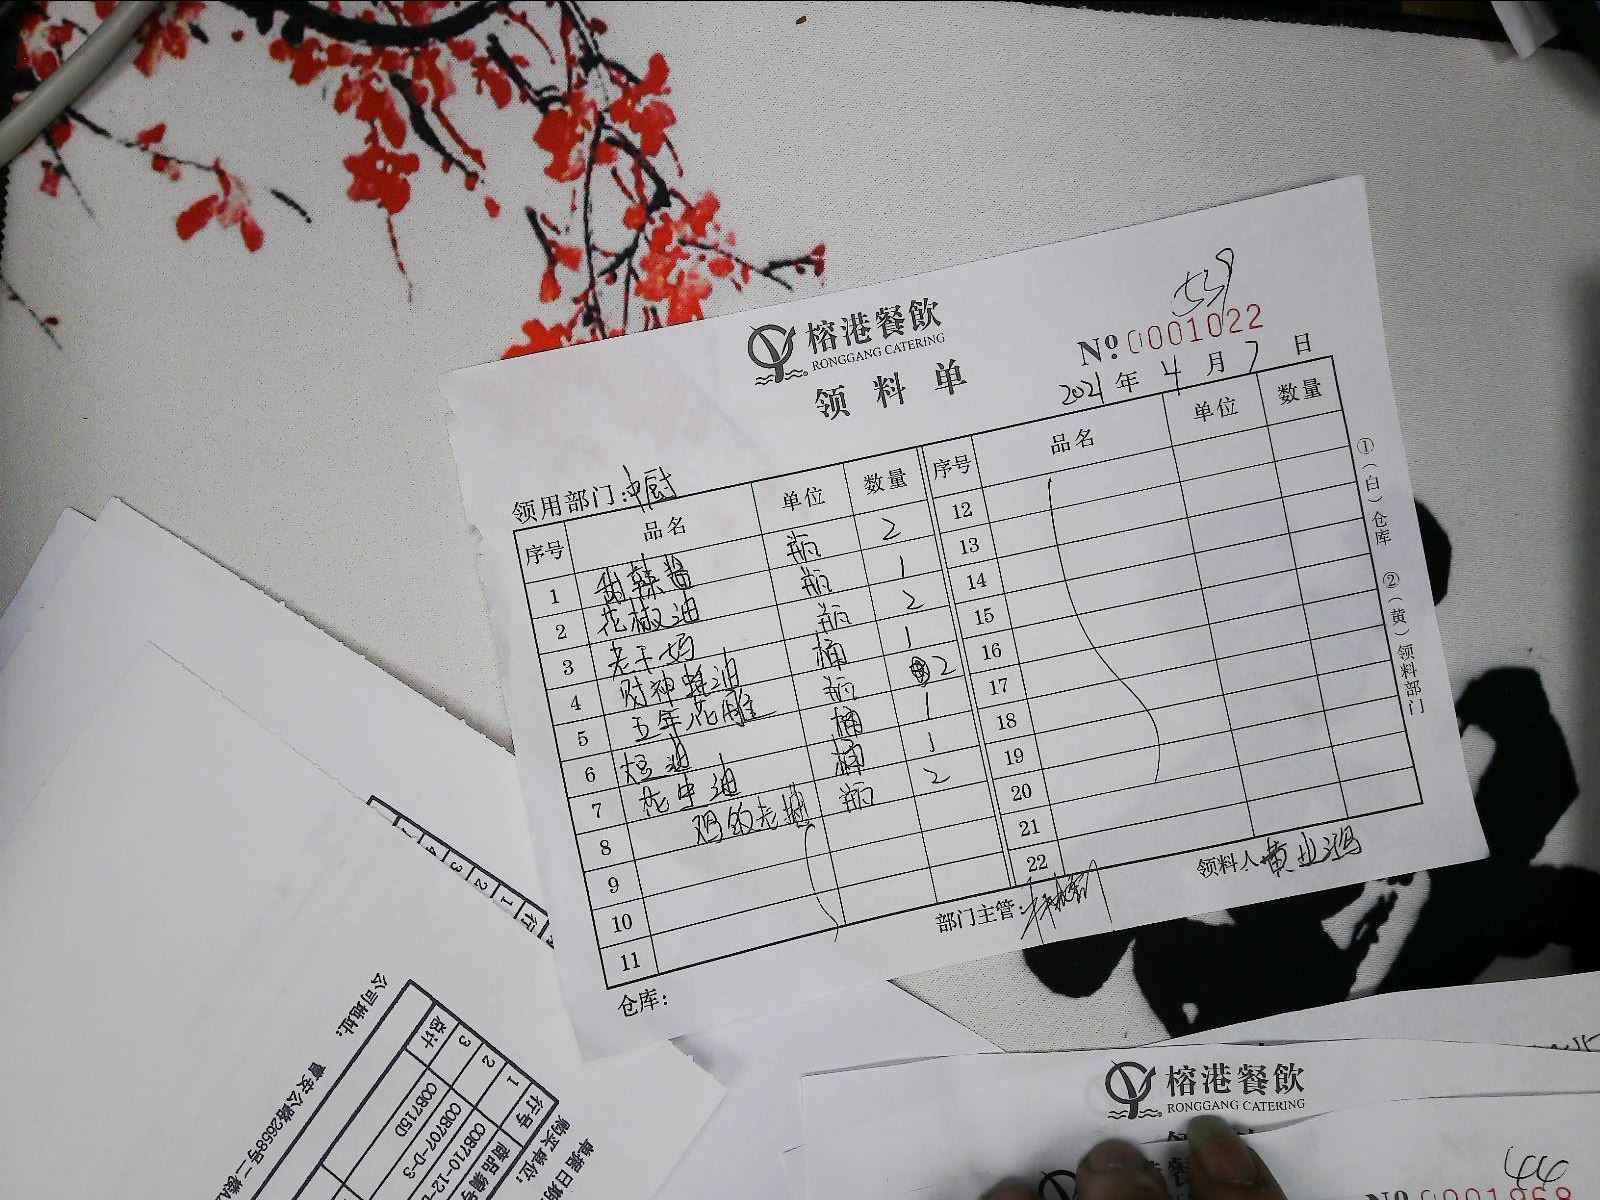 榕港餐飲
RONGGANG CATERING
领料单
539
Nº 0001022
2021 年 4 月 7 日
领用部门:中厨
序号 品名 单位 数量 序号 品名 单位 数量
1 甜辣酱 瓶 2 12
2 花椒油 瓶 1 13
3 老干妈 瓶 2 14
4 财神蚝油 桶 1 15
5 五年花雕 瓶 2 16
6 大豆油 桶 1 17
7 花生油 桶 1 18
8 瓶 2 19
9 20
10 21
11 22
仓库:
部门主管:
领料人 黄业鸿
①(白)仓库 ②(黄)领料部门
榕港餐飲
RONGGANG CATERING
446
公司地址:
曹安公路2658号二楼
总计
3 COB715D
2 COB707-D-3
1 COB710-12-
行号 商品编号
购买单位:
单据日期